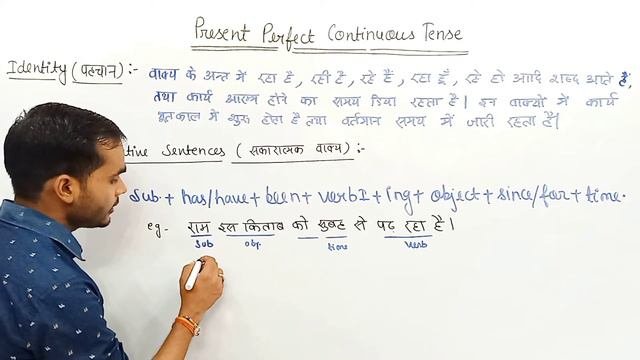 Present Perfect Continuous Tense
Identity (पहचान) :- वाक्य के अन्त में रहा है, रही है, रहे हैं, रहा हूँ, रहे हो आदि शब्द आते हैं,
तथा कार्य आरम्भ होने का समय दिया रहता है। इन वाक्यों में कार्य
भूतकाल में शुरू होता है तथा वर्तमान समय में जारी रहता है।
tive Sentences ( सकारात्मक वाक्य ) :-
Sub. + has/have + been + verb I + ing + object + since/for + time.
eg - राम इस किताब को सुबह से पढ़ रहा है।
Sub obj. time verb